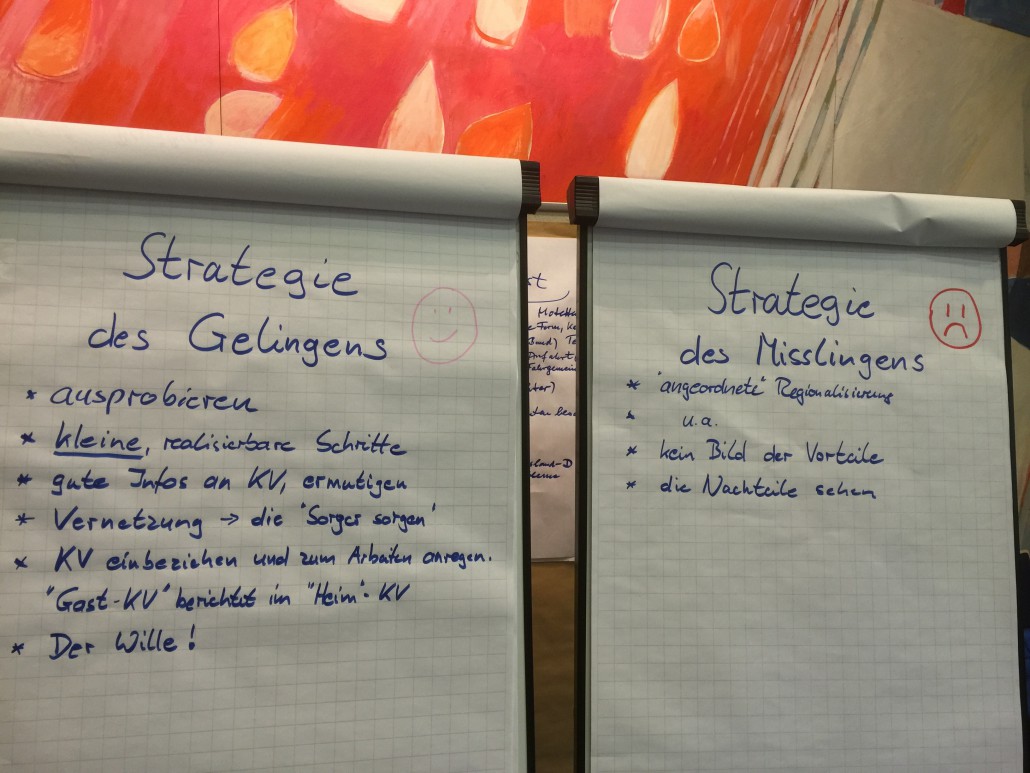 Strategie
des Gelingens
* ausprobieren
* kleine, realisierbare Schritte
* gute Infos an KV, ermutigen
* Vernetzung → die "Sorger sorgen"
* KV einbeziehen und zum Arbeiten anregen.
"Gast-KV" berichtet im "Heim"-KV
* Der Wille!
st
Bund)
Strategie
des Misslingens
* "angeordnete" Regionalisierung
* u.a.
* kein Bild der Vorteile
* die Nachteile sehen